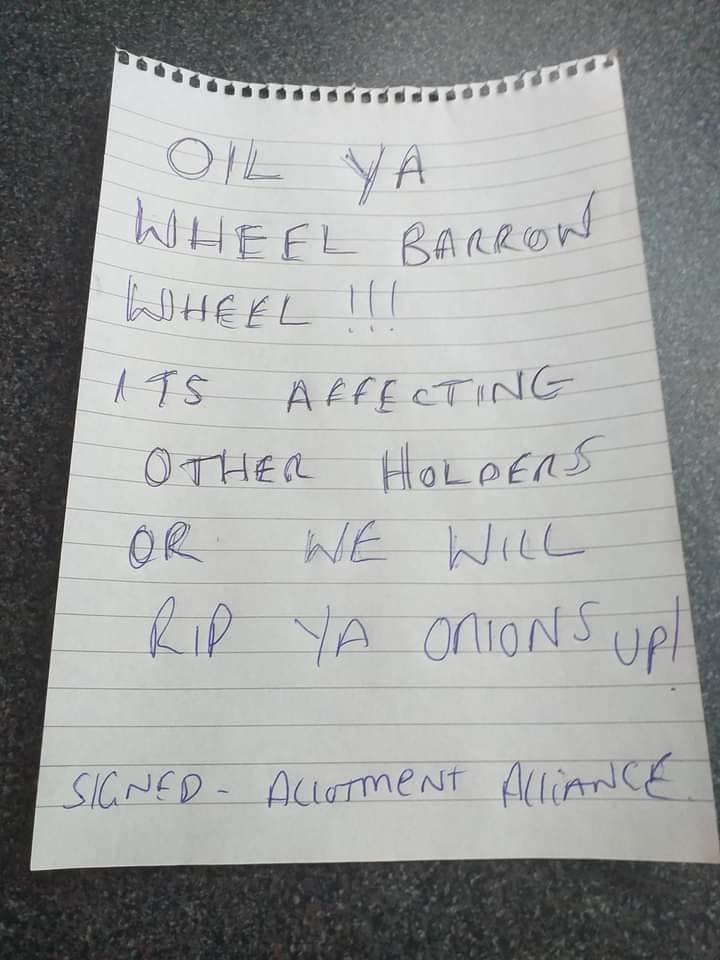 OIL YA
WHEEL BARROW
WHEEL !!!
ITS AFFECTING
OTHER HOLDERS
OR WE WILL
RIP YA ONIONS UP!
SIGNED - ALLOTMENT ALLIANCE.